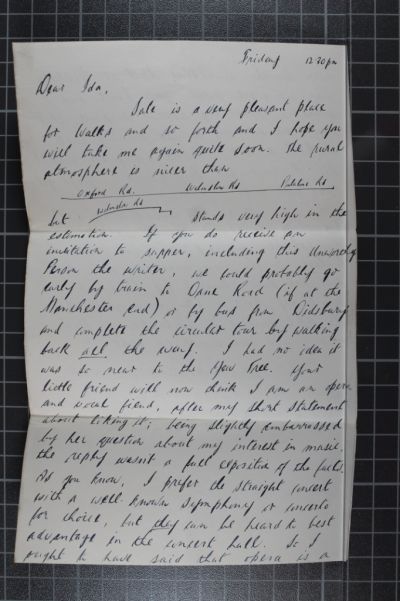 Friday 12.30pm
Dear Ida,
Sale is a very pleasant place
for walks and so forth and I hope you
will take me again quite soon. The rural
atmosphere is nicer than
Oxford Rd. Wilmslow Rd Palatine Rd
but Wilmslow Rd stands very high in the
estimation. If you do receive an
invitation to supper, including this Unworthy
Person the writer, we could probably go
early by train to Dane Road (if at the
Manchester end) or by bus from Didsbury
and complete the circular tour by walking
back all the way. I had no idea it
was so near to the Yew Tree. Your
little friend will now think I am an opera
and vocal fiend, after my short statement
about liking it; being slightly embarrassed
by her question about my interest in music,
the reply wasn't a full exposition of the facts.
As you know, I prefer the straight concert
with a well known symphony or concerto
for choice, but they can be heard to best
advantage in the concert hall. So I
ought to have said that opera is a